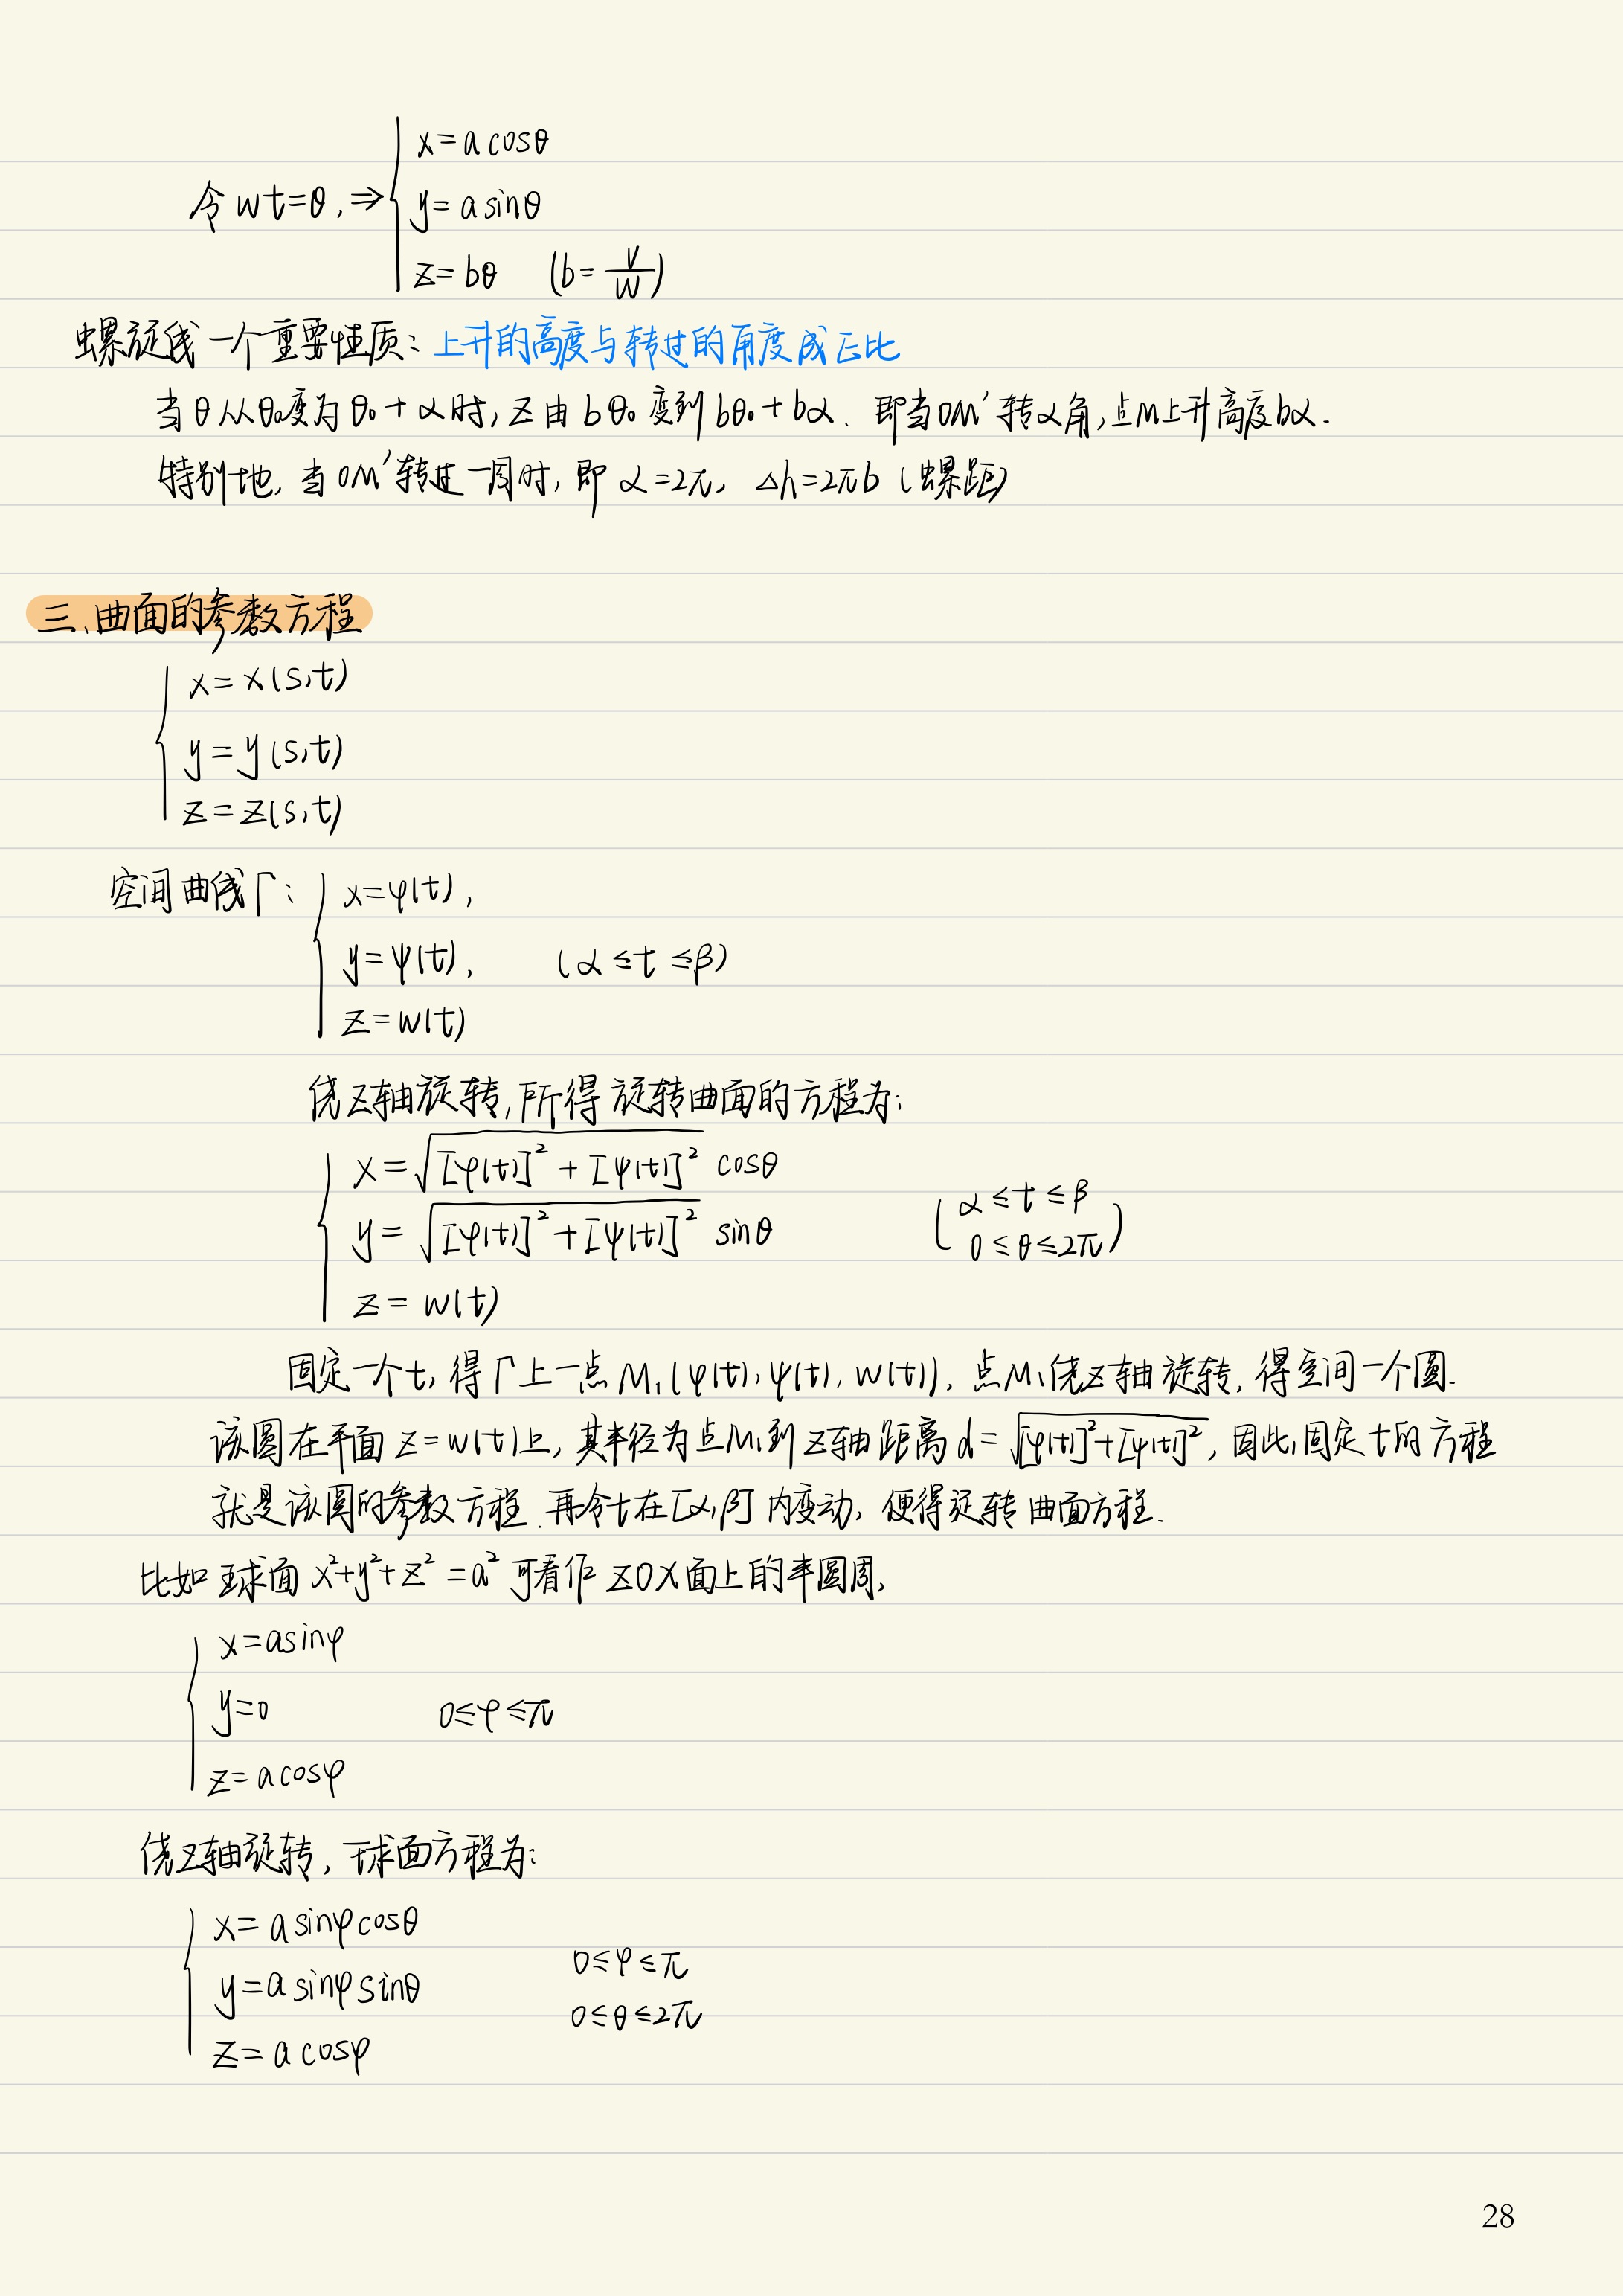 令 wt=θ, ⇒ { x=a cosθ
y=a sinθ
z=bθ (b=V/W)
螺旋线一个重要性质: 上升的高度与转过的角度成正比
当θ从θ₀变为θ₀+α时, z由bθ₀变到bθ₀+bα. 即当OM′转α角, 点M上升高度bα.
特别地, 当OM′转过一周时, 即α=2π, △h=2πb (螺距)
三、曲面的参数方程
{ x=x(s,t)
y=y(s,t)
z=z(s,t)
空间曲线Γ: { x=φ(t),
y=ψ(t), (α≤t≤β)
z=w(t)
绕z轴旋转, 所得旋转曲面的方程为:
{ x=√([φ(t)]²+[ψ(t)]²) cosθ
y=√([φ(t)]²+[ψ(t)]²) sinθ (α≤t≤β
0≤θ≤2π)
z=w(t)
固定一个t, 得Γ上一点M₁(φ(t),ψ(t),w(t)), 点M₁绕z轴旋转, 得空间一个圆.
该圆在平面z=w(t)上, 其半径为点M₁到z轴距离d=√([φ(t)]²+[ψ(t)]²), 因此,固定t的方程
就是该圆的参数方程. 再令t在[α,β]内变动, 便得旋转曲面方程.
比如球面x²+y²+z²=a²可看作zOx面上的半圆周,
{ x=asinφ
y=0 0≤φ≤π
z=acosφ
绕z轴旋转, 球面方程为:
{ x=asinφcosθ
y=asinφsinθ 0≤φ≤π
0≤θ≤2π
z=acosφ
28